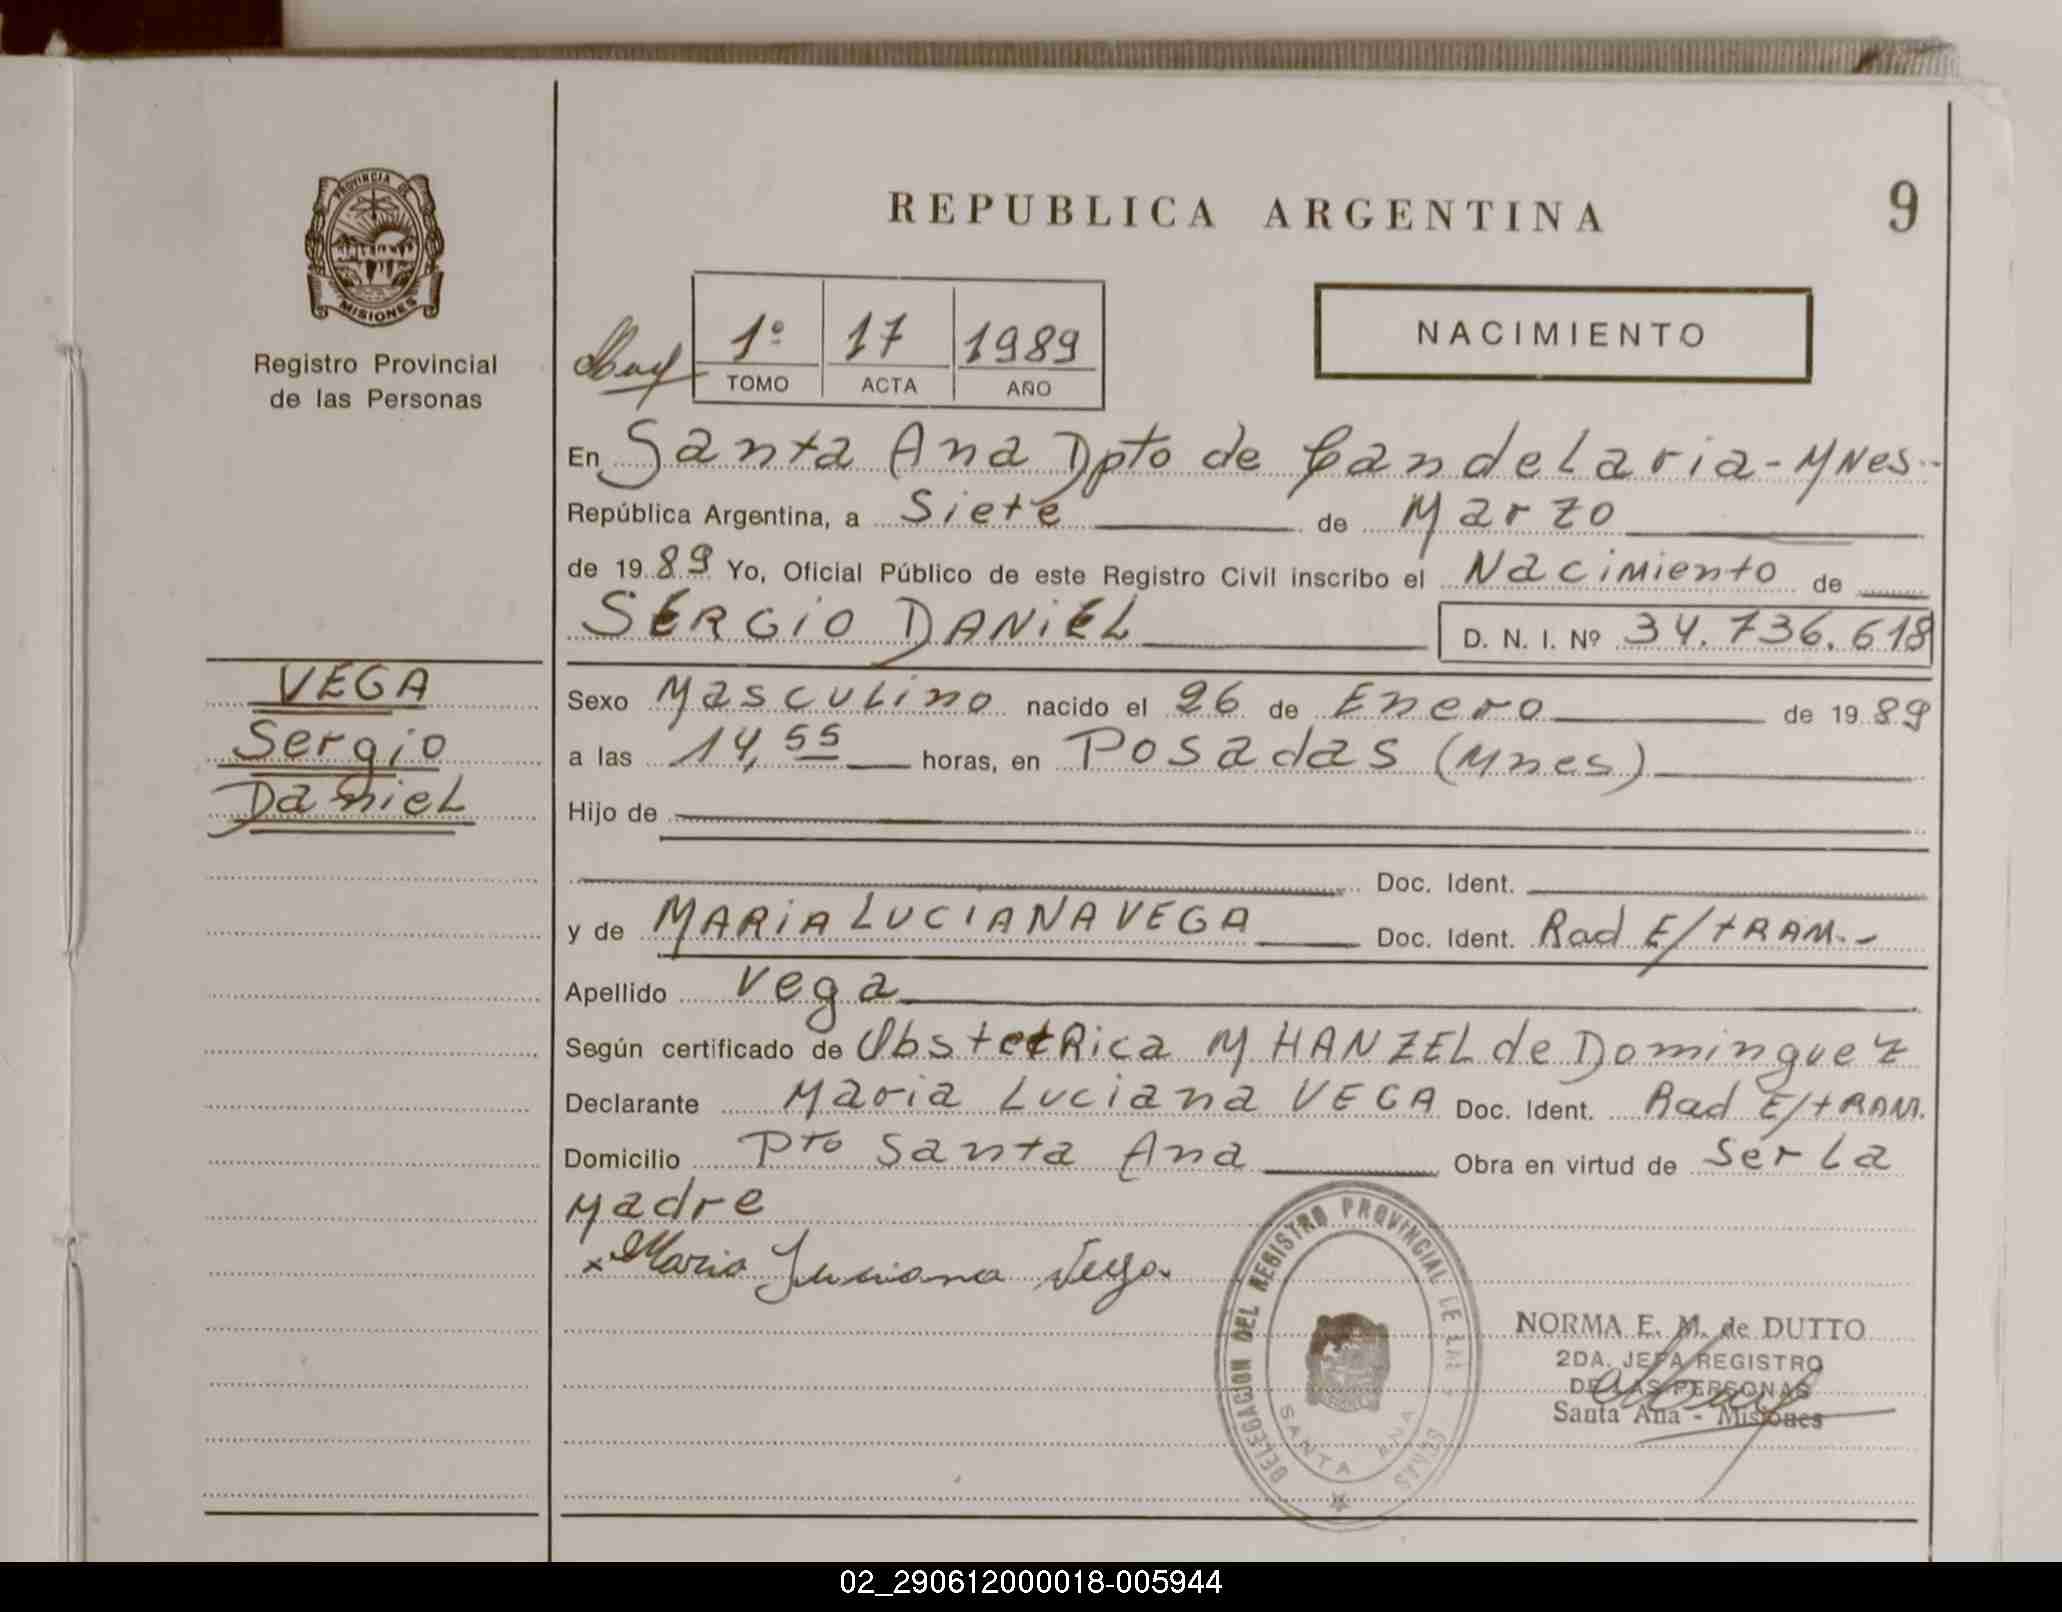 PROVINCIA DE
MISIONES
Registro Provincial
de las Personas
REPUBLICA ARGENTINA
9
1º 17 1989
TOMO ACTA AÑO
NACIMIENTO
En Santa Ana Dpto de Candelaria - Mnes.-
República Argentina, a Siete de Marzo
de 1989 Yo, Oficial Público de este Registro Civil inscribo el Nacimiento de
SERGIO DANIEL
D. N. I. Nº 34.736.618
VEGA
Sergio
Daniel
Sexo Masculino nacido el 26 de Enero de 1989
a las 14,55 horas, en Posadas (Mnes)
Hijo de
Doc. Ident.
y de MARIA LUCIANA VEGA Doc. Ident. Rad E/tRAM.-
Apellido Vega
Según certificado de Obstetrica M HANZEL de Dominguez
Declarante Maria Luciana VEGA Doc. Ident. Rad E/tRAM.
Domicilio Pto Santa Ana Obra en virtud de ser la
Madre
x Maria Luciana Vega.
DELEGACION DEL REGISTRO PROVINCIAL DE LAS
SANTA ANA
NORMA E. M. de DUTTO
2DA. JEFA REGISTRO
DE LAS PERSONAS
Santa Ana - Misiones
02_290612000018-005944